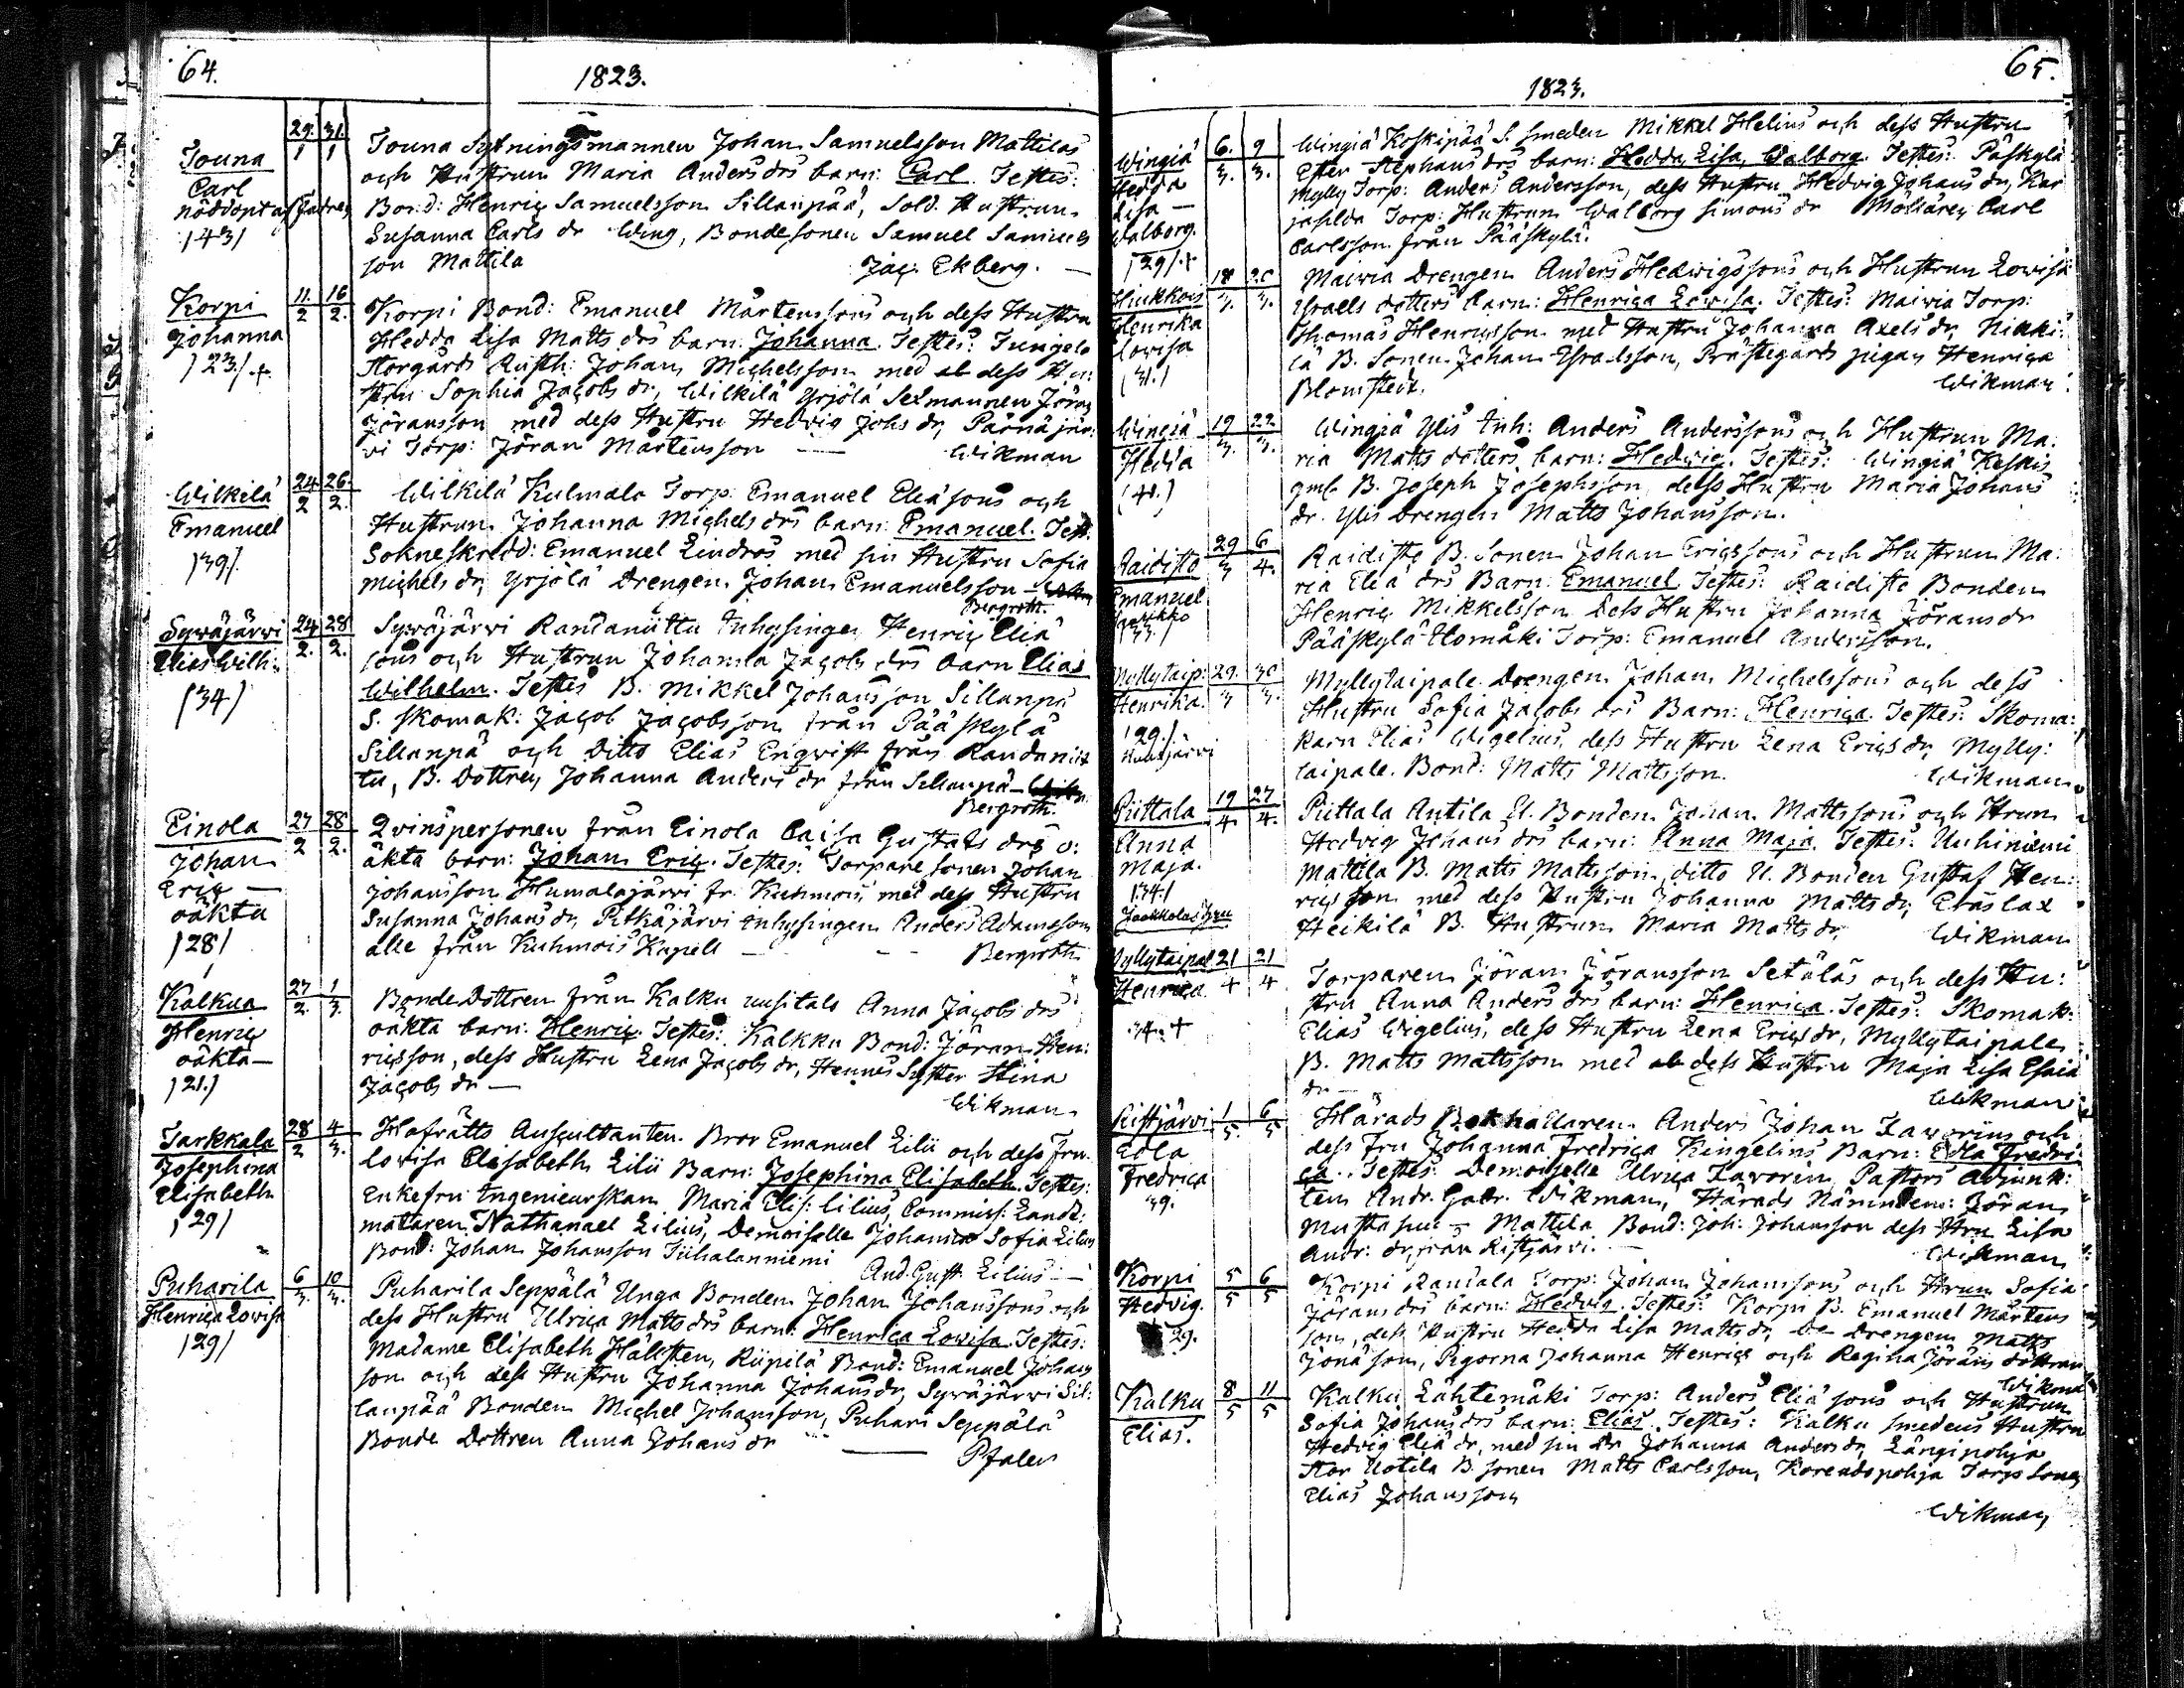 64.
1823.
29. 31.
1 1
Jouna
Carl
nöddopt af Fadren
/43/
Jouna Sytningsmannen Johan Samuelsson Mattilas
och Hustrun Maria Anders drs barn: Carl. Testes:
Bond: Henric Samuelsson Sillanpää, Sold. Hustrun
Susanna Carls dr Wing, Bondesonen Samuel Samuels
son Mattila Jac: Ekberg.
Korpi
Johanna
/23/ +
11. 16
2 2.
Korpi Bond: Emanuel Mårtenssons och dess Hustru
Hedda Lisa Matts drs barn: Johanna. Testes: Jungelo
Storgårds Rusth: Johan Michelsson med dess Hu:
stru Sophia Jacobs dr, Wilkilä Yrjölä Sexmannen Jöran
Jöransson med dess Hustru Hedvig Johs dr, Pärnäjär:
vi Torp: Jöran Mårtensson Wikman
Wilkilä
Emanuel
/39/
24 26.
2 2.
Wilkilä Kulmala Torp: Emanuel Eliäsons och
Hustrun Johanna Michels drs barn: Emanuel. Test:
Sokneskrädd: Emanuel Lindros med sin Hustru Sofia
Michels dr, Yrjölä Drengen Johan Emanuelsson
Bergroth.
Sywäjärwi
Elias Wilh:
/34/
24 28
2. 2.
Sywäjärwi Randaniittu Inhysingen Henric Eliä
sons och Hustrun Johanna Jacobs drs barn Elias
Wilhelm. Testes B. Mikkel Johansson Sillanpä
S. skomak: Jacob Jacobsson från Pääskylä
Sillanpä och Ditto Elias Engwist från Randanit
tu, B. Dottren Johanna Anders dr från Sillanpä
Bergroth.
Einola
Johan
Eric
oäkta
/28/
27 28
2 2.
Qvinspersonen från Einola Caisa Gustafs drs o:
äkta barn: Johan Eric. Testes: Torpare sonen Johan
Johansson Humalajärvi fr. Kuhmois, med dess Hustru
Susanna Johans dr, Pitkäjärvi Inhysingen Anders Adamsson
alle från Kuhmois Kapell Bergroth
Kalkua
Henric
oäkta
/21./
27 1
2. 3.
Bonde Dottren från Kalku uusitalo Anna Jacobs drs
oäkta barn: Henric. Testes: Kalkku Bond: Jöran Hen:
ricsson, dess Hustru Lena Jacobs dr, Hennes Syster Stina
Jacobs dr Wikman
Jarkkala
Josephina
Elisabeth
/29/
28 4
2 3.
Hofrätts Auscultanten Bror Emanuel Lilii och dess Fru
Lovisa Elisabeth Lilii Barn: Josephina Elisabeth. Testes:
Enkefru Ingenieurskan Maria Elis: Lilius, Commiss: Landt:
mätaren Nathanael Lilius, Demoiselle Johanna Sofia Lilius
Bond: Johan Johansson Tiihalanniemi And. Gust. Lilius
Puharila
Henrica Lowisa
/29/
6 10
3. 3.
Puharila Seppälä Unga Bonden Johan Johanssons och
dess Hustru Ulrica Matts drs barn: Henrica Lowisa. Testes:
Madame Elisabeth Hällsten, Riipilä Bond: Emanuel Johans
son och dess Hustru Johanna Johans dr, Sywäjärwi Sil:
lanpää Bonden Michel Johansson, Puhari Seppälä
Bonde Dottren Anna Johans dr Pfaler
65.
1823.
Wingiä
Hedda
Lisa
Walborg.
/29/ +
6. 9
3. 3.
Wingiä Koskipää S. smeden Mikkel Helins och dess Hustru
Ester Stephans drs barn: Hedda, Lisa, Walborg. Testes: Päskylä
Mylly Torp: Anders Andersson, dess Hustru Hedvig Johans dr, Kar
Torp: Hustrun Walborg Simons dr Carl
Carlsson från Pääskylä.
Henrika
Lovisa
/31./
18 20
3. 3.
Maivia Drengen Anders Hedwigssons och Hustrun Lowisa
Israels dotters barn: Henrica Lovisa. Testes: Maivia Torp:
Thomas Henricsson med Hustru Johanna Axels dr, Nikki:
lä B. Sonen Johan Israelsson, Prästegårds pigan Henrica
Blomstedt. Wikman
Wingiä
Hedda
/41./
19 22
3. 3.
Wingiä Ylis Inh: Anders Anderssons och Hustrun Ma:
ria Matts dotters barn: Hedwig. Testes: Wingiä Keskis
gml. B. Joseph Josephsson, dess Hustru Maria Johans
dr. Ylis Drengen Matts Johansson.
Raidisto
Emanuel
/33/
29 6
3 4.
Raidisto B. Sonen Johan Ericssons och Hustrun Ma:
ria Eliä drs Barn: Emanuel Testes: Raidisto Bonden
Henric Mikkelsson Dess Hustru Johanna Jörans dr
Pääskylä Ilomäki Torp: Emanuel Andersson.
Myllytaip:
Henrika.
/29./
29. 30
3 3.
Myllytaipale Drengen Johan Michelssons och dess
Hustru Sofia Jacobs drs Barn: Henrica. Testes: Skoma:
karn Elias Wigelius, dess Hustru Lena Erics dr, Mylly:
taipale Bond: Matts Mattsson. Wikman
Piittala
Anna
Maja.
/34/
19 27
4. 4.
Piittala Antila U. Bonden Johan Mattssons och Hrun
Hedvig Johans drs barn: Anna Maja. Testes: Unhiniemi
Mattila B. Matts Mattsson, ditto U. Bonden Gustaf Hen:
ricsson med dess Hustru Johanna Matts dr, Eräslax
Heikilä B. Hustrun Maria Matts dr, Wikman
Myllytaipal
Henrica
34. +
21 21
4 4
Torparen Jöran Jöransson Setäläs och dess Hu:
stru Anna Anders drs barn: Henrica. Testes: Skomak:
Elias Wigelius, dess Hustru Lena Erics dr, Myllytaipale
B. Matts Mattsson med dess Hustru Maja Lisa Esaia
dr Wikman
Ristjärvi
Edla
Fredrica
39.
1 6
5. 5
Härads Bokhållaren Anders Johan Laworins och
dess Fru Johanna Fredrica Kingelins Barn: Edla Fredri
ca. Testes: Demoiselle Ulrica Laworin, Pastors Adjunk:
ten Andr. Gabr. Wikman, Härads Nämndem: Jöran
Mustasuo Mattila Bond: Joh: Johansson dess Hru Lisa
Andr: dr, från Ristjärvi. Wikman
Korpi
Hedvig.
29.
5 6
5 5
Korpi Randala Torp: Johan Johanssons och Hrun Sofia
Jörans drs barn: Hedvig. Testes: Korpi B. Emanuel Mårtens
son, dess Hustru Hedda Lisa Matts dr, Drengen Matts
Jonäson, Pigorna Johanna Henrics och Regina Jörans döttrar
Wikman
Kalku
Elias.
8 11
5 5
Kalku Lähtemäki Torp: Anders Eliä sons och Hustrun
Sofia Johans drs barn: Elias. Testes: Kalku smedens Hustru
Hedvig Eliä dr, med sin dr Johanna Anders dr, Längipohja
Stor Uotila B. sonen Matts Carlsson, Torp sonen
Elias Johansson
Wikman